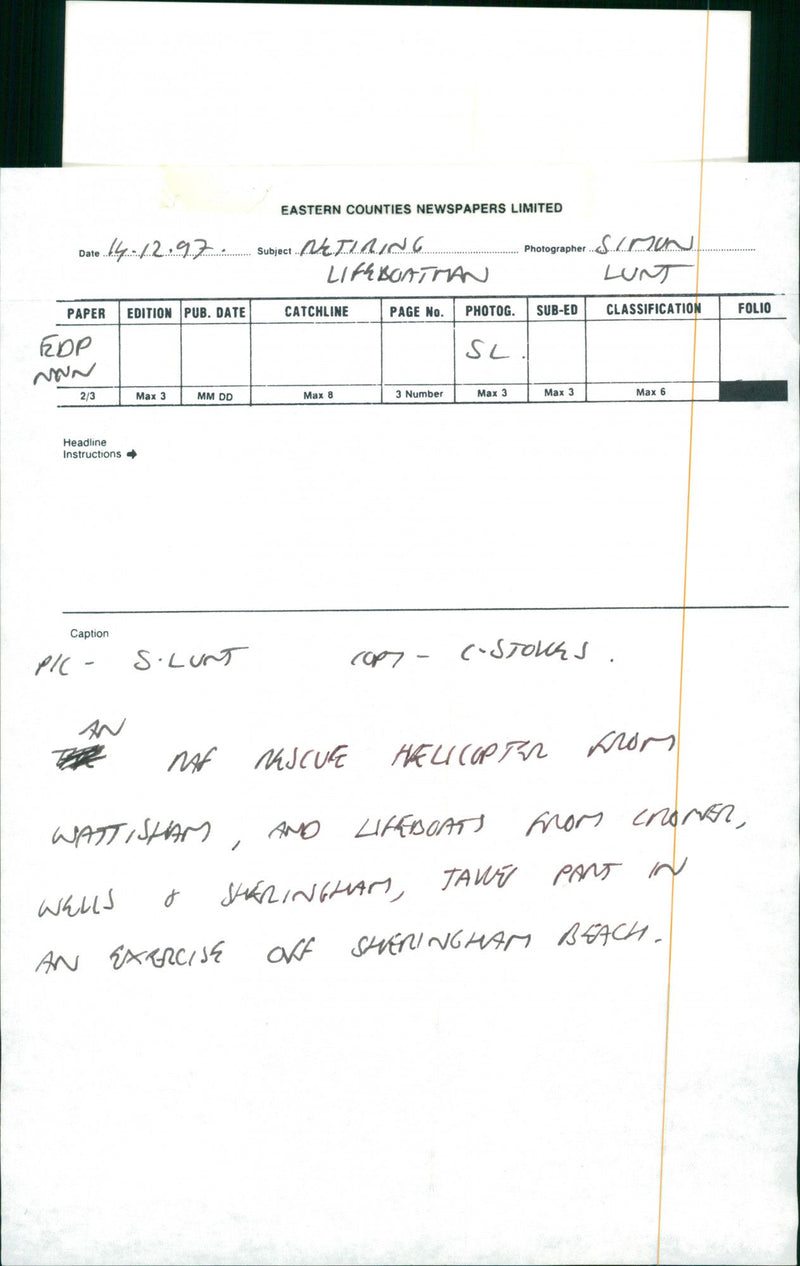 EASTERN COUNTIES NEWSPAPERS LIMITED
Date 14.12.97. Subject RETIRING Photographer SIMON
LIFEBOATMAN LUNT
PAPER EDITION PUB. DATE CATCHLINE PAGE No. PHOTOG. SUB-ED CLASSIFICATION FOLIO
EDP SL.
NNN
2/3 Max 3 MM DD Max 8 3 Number Max 3 Max 3 Max 6
Headline
Instructions →
Caption
PIC - S.LUNT COPY - C.STOKES.
AN
RAF RESCUE HELICOPTER FROM
WATTISHAM, AND LIFEBOATS FROM CROMER,
WELLS & SHERINGHAM, TAKE PART IN
AN EXERCISE OFF SHERINGHAM BEACH.